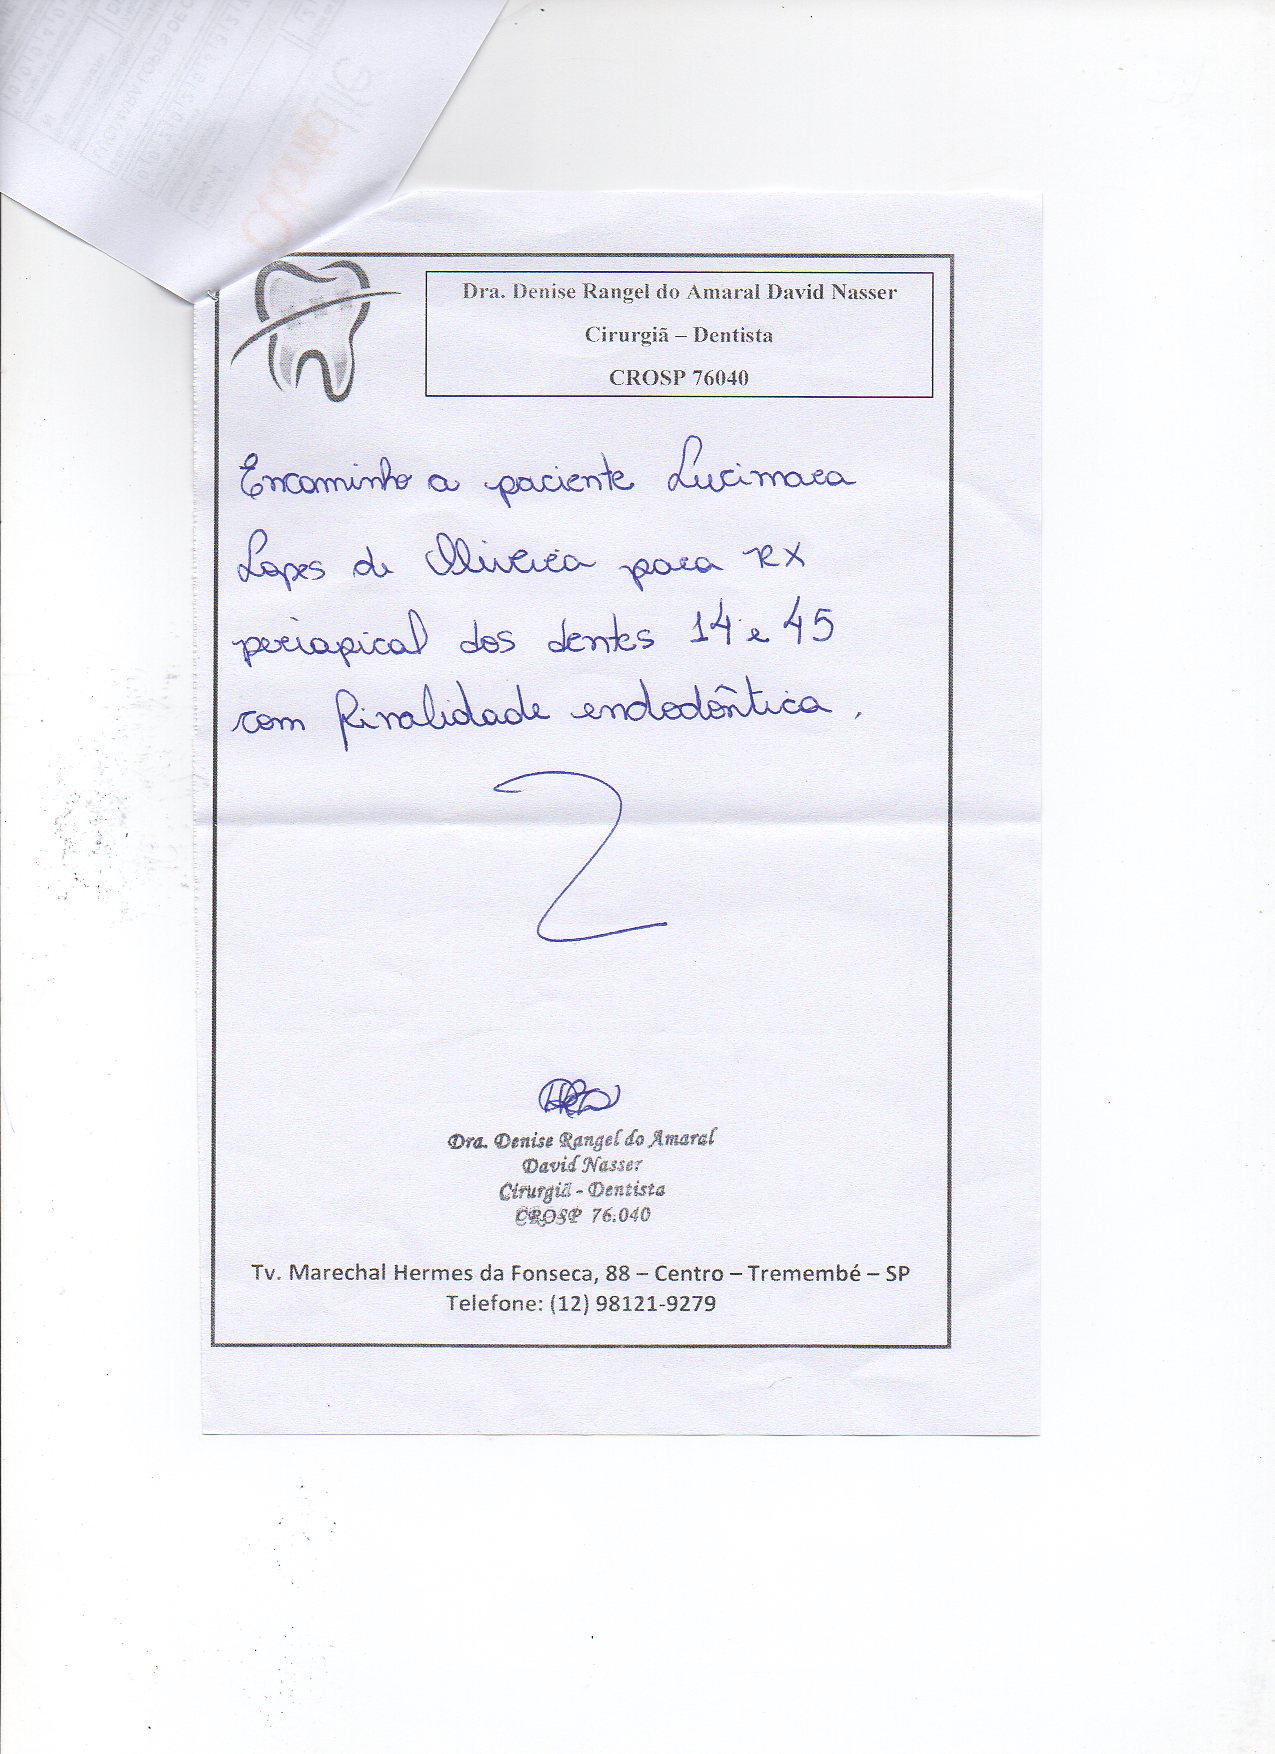 Dra. Denise Rangel do Amaral David Nasser
Cirurgiã – Dentista
CROSP 76040
Encaminho a paciente Lucimara
Lopes de Oliveira para RX
periapical dos dentes 14 e 45
com finalidade endodôntica.
Dra. Denise Rangel do Amaral
David Nasser
Cirurgiã - Dentista
CROSP 76.040
Tv. Marechal Hermes da Fonseca, 88 – Centro – Tremembé – SP
Telefone: (12) 98121-9279